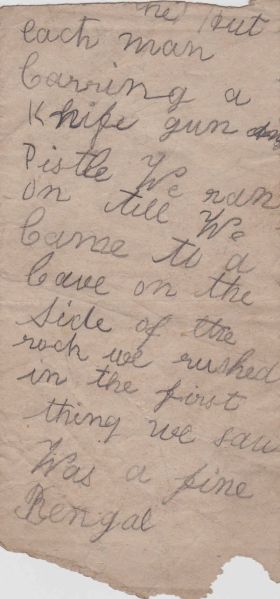 he) but
each man
Carring a
Knife gun
Pistle We ran
on till We
Came to a
Cave on the
Side of the
rock we rushed
in the first
thing we saw
Was a fine
Bengal